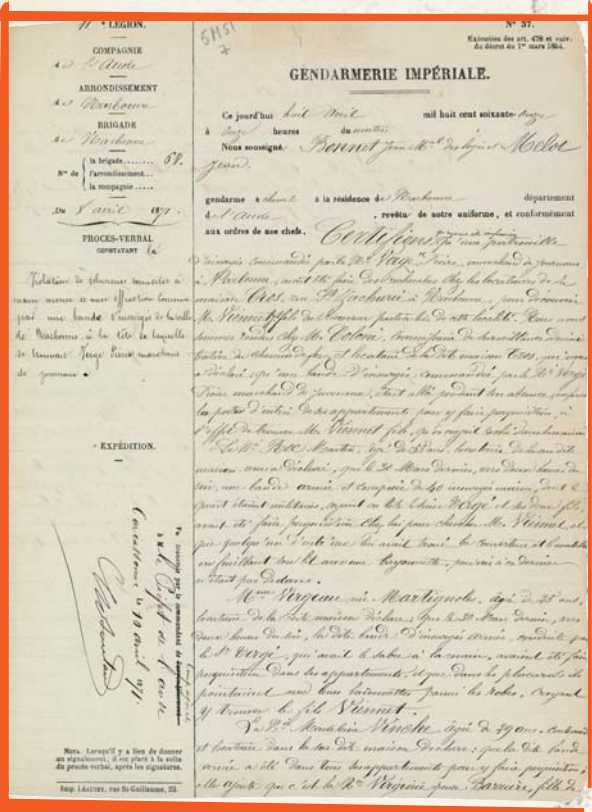 11e LÉGION.
COMPAGNIE
de l'Aude
ARRONDISSEMENT
de Narbonne
BRIGADE
de Narbonne
Nos de
la brigade....... 68.
l'arrondissement...
la compagnie....
Du 8 avril 1871.
PROCÈS-VERBAL
CONSTATANT la
Violation de plusieurs domiciles à
main armée et avec effraction commise
par une bande d'insurgés de la ville
de Narbonne à la tête de laquelle
se trouvait Vergé Pierre marchand
de journaux.
EXPÉDITION.
Vu et transmis par le commandant de
à M. le Préfet de l'Aude
Carcassonne, le 10 avril 1871.
NOTA. Lorsqu'il y a lieu de donner
un signalement, il est placé à la suite
du procès-verbal, après les signatures.
Imp. LÉAUTEY, rue St-Guillaume, 23.
5M51
7
N° 37.
Exécution des art. 478 et suiv.
du décret du 1er mars 1854.
GENDARMERIE IMPÉRIALE.
Ce jourd'hui huit avril mil huit cent soixante-onze
à onze heures du matin
Nous soussigné Bonnet Jean Mal des logis et Meloc
Jean.
gendarme à cheval à la résidence de Narbonne département
de l'Aude, revêtu de notre uniforme, et conformément
aux ordres de nos chefs, Certifions qu'une patrouille
d'insurgés commandée par le Né Vergé Pierre, marchand de journaux
à Narbonne, avait été faire des recherches chez les locataires de la
maison Cros, rue à Narbonne, pour découvrir
M. Viennet fils de cette localité. Nous nous
sommes rendus chez M. Colom, commissaire de surveillance administrative
du chemin de fer, et locataire de la dite maison Cros, qui nous
a déclaré qu'une bande d'insurgés, commandée par le Né Vergé
Pierre marchand de journaux, était allé pendant son absence,
les portes d'entrée de ses appartements pour y faire perquisition, à
l'effet de trouver M. Viennet fils, qu'on croyait caché dans la maison
Le Né Roc Martin, âgé de 58 ans, locataire de la susdite
maison nous a déclaré, que le 30 Mars dernier, vers deux heures du
soir, une bande armée et composée de 40 insurgés environ, dont le
quart étaient militaires, ayant en tête le Vergé et ses deux fils,
avait été faire perquisition chez lui pour chercher M. Viennet, et
que quelqu'un d'entre eux lui avait troué la couverture et le matelas
en fouillant son lit avec une bayonnette, pour voir si ce dernier
n'était pas dedans.
Mme Vergeau née Martignole, âgée de 25 ans,
locataire de la dite maison déclare: que le 30 Mars dernier, vers
deux heures du soir, la dite bande d'insurgés armés, conduite par
le Sr Vergé, qui avait le sabre à la main, avaient été faire
perquisition dans ses appartements, et que dans les placards ils
pointaient avec leurs baïonnettes parmi les robes, croyant
y trouver le fils Viennet.
La Né Madeleine Vinche âgée de 39 ans,
et locataire dans la sus dite maison déclare: que la dite bande
armée a été dans tous ses appartements pour y faire perquisition;
elle ajoute que c'est la Née Virginie Barrière, fille de